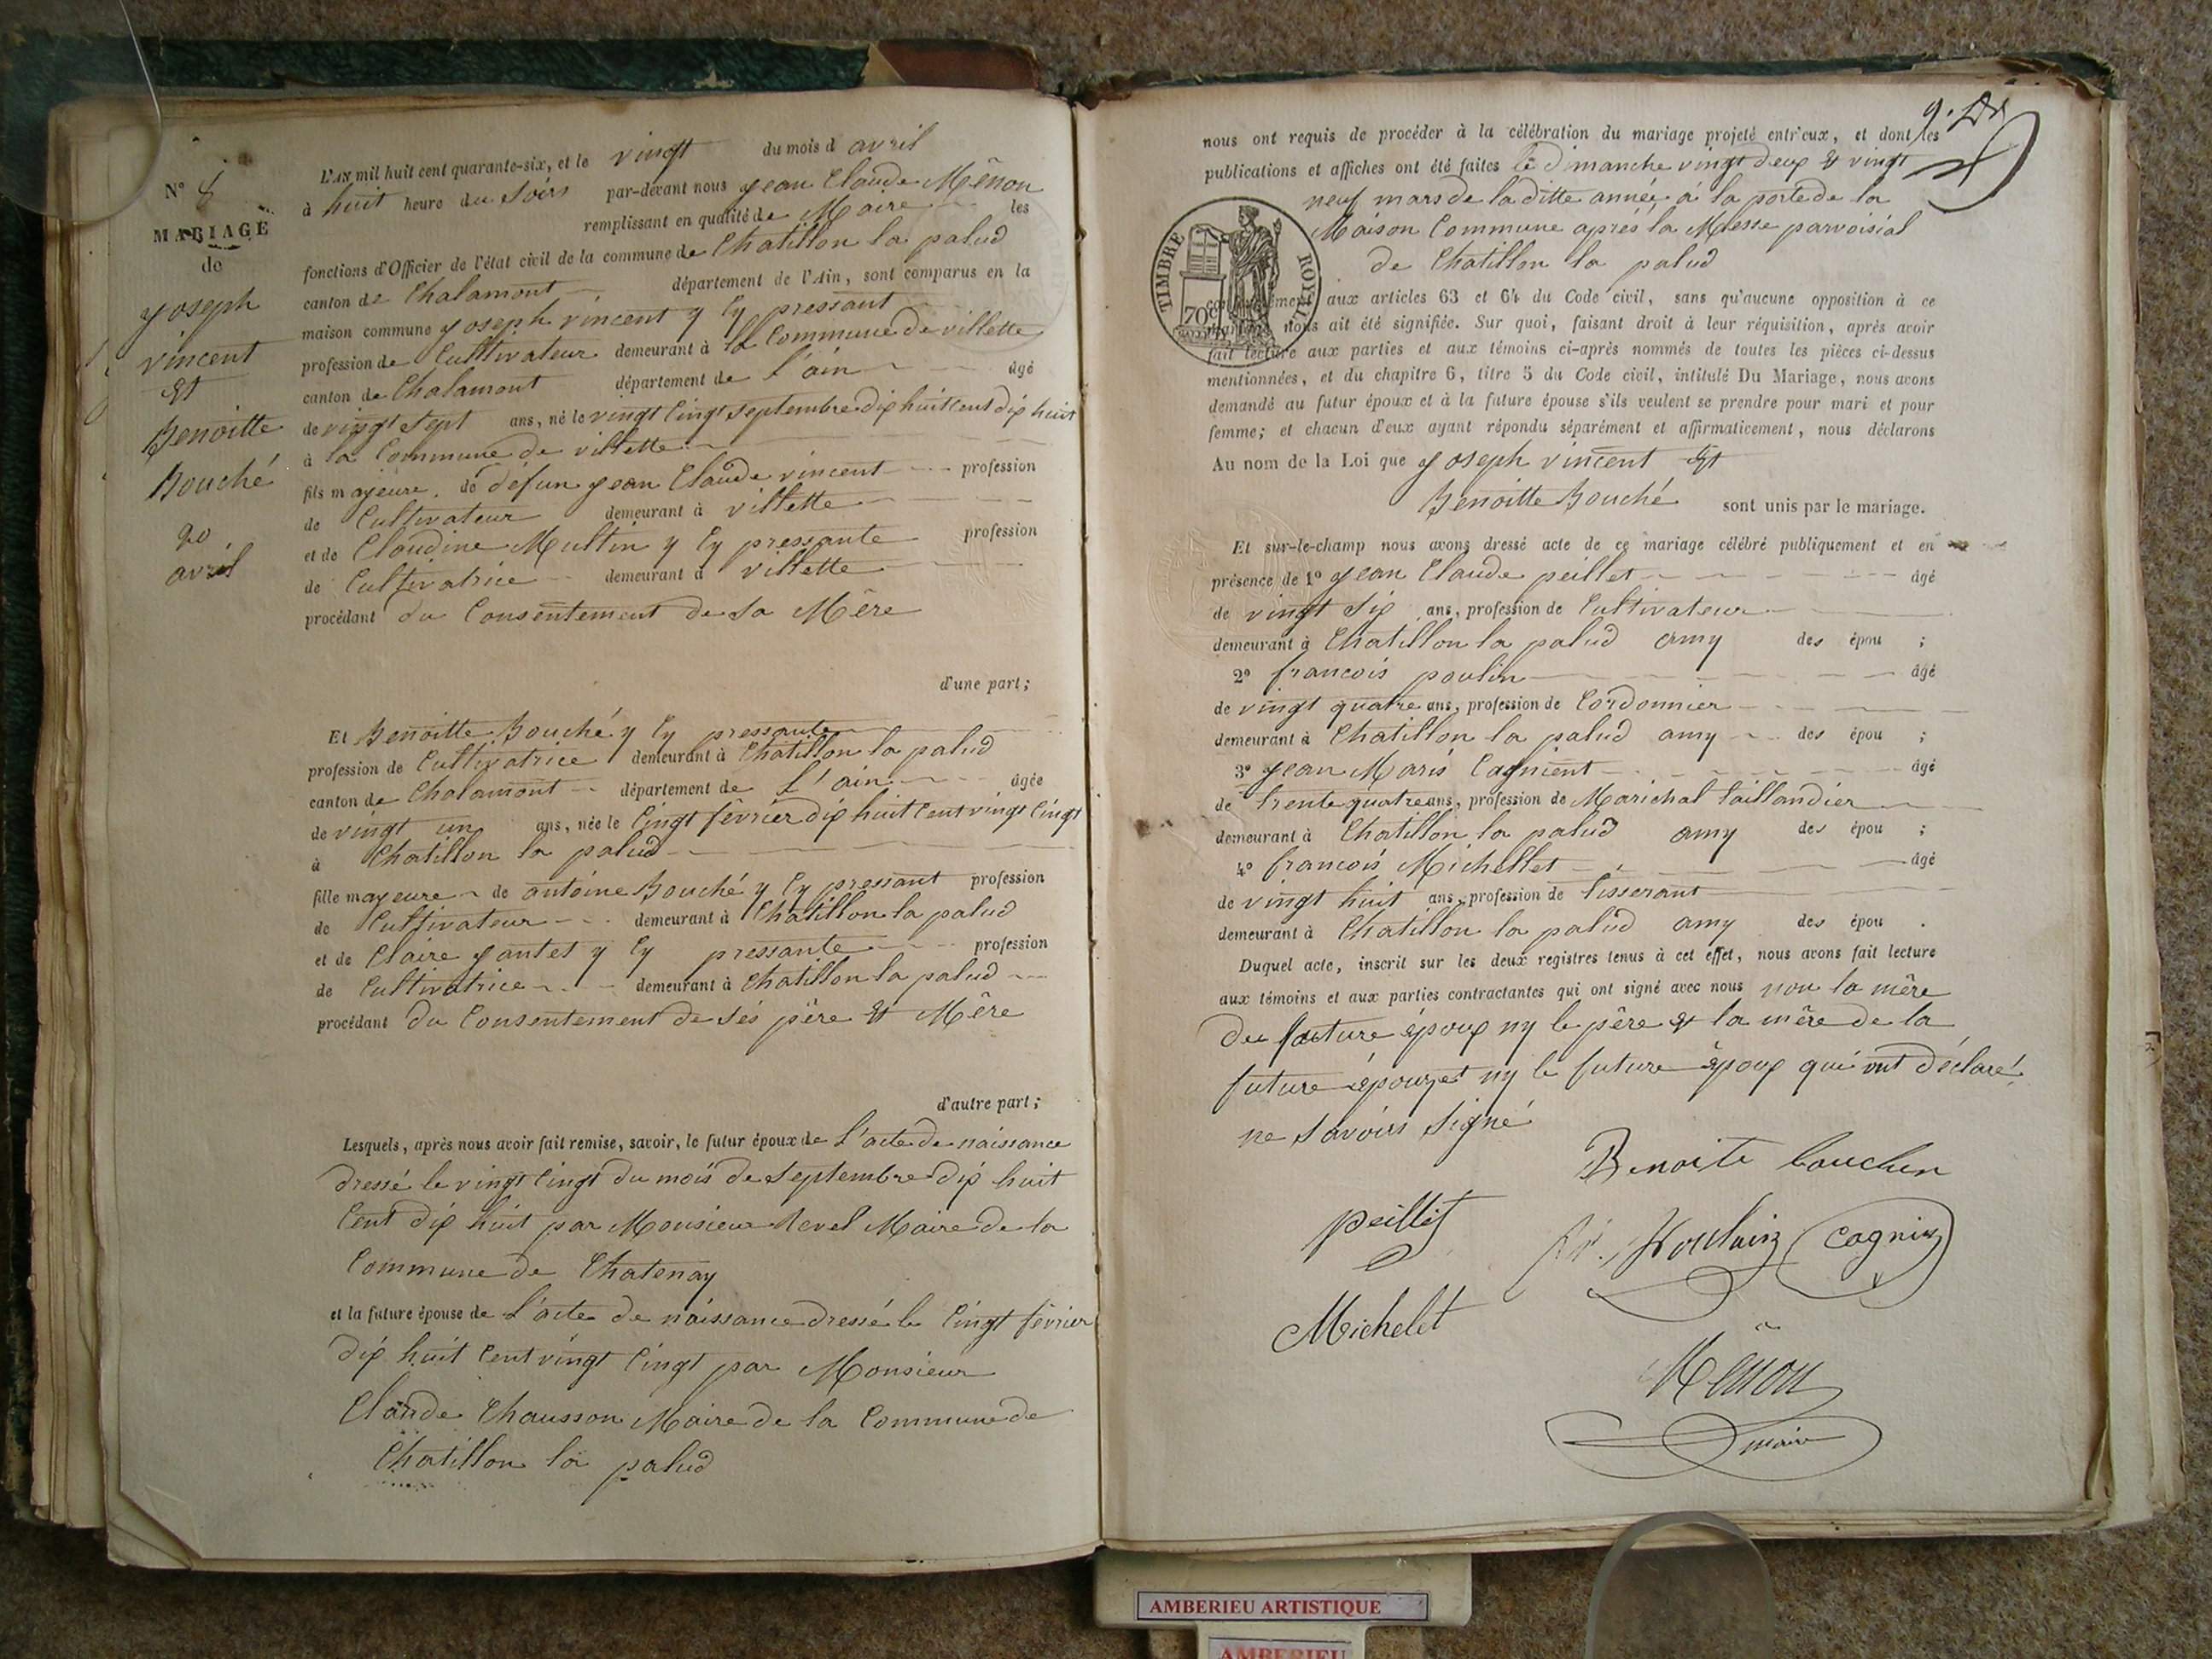 N° 8
MARIAGE
de
yoseph
vincent
Et
Benoitte
Bouché
20
avril
L'AN mil huit cent quarante-six, et le vingt du mois d avril
à huit heure du Soirs par-devant nous yean Claude Mênon
remplissant en qualité de Maire les
fonctions d'Officier de l'état civil de la commune de Chatillon la palud
canton de Chalamont département de l'Ain, sont comparus en la
maison commune yoseph vincent y Cy pressant
profession de Cultivateur demeurant à la Commune de villette
canton de Chalamont département de l'ain âgé
de vingt Sept ans, né le vingt Cingt Septembre dix huit Cent dix huit
à la Commune de villette
fils majeure. de défun yean Claude vincent profession
de Cultivateur demeurant à villette
et de Claudine Multin y Cy pressante profession
de Cultivatrice demeurant à villette
procédant du Consentement de Sa Mêre
d'une part;
Et Benoitte Bouché y Cy pressante
profession de Cultivatrice demeurant à Chatillon la palud
canton de Chalamont département de L'ain âgée
de vingt un ans, née le Cingt février dix huit Cent vingt Cingt
à Chatillon la palud
fille mayeure de antoine Bouché y Cy pressant profession
de Cultivateur demeurant à Chatillon la palud
et de Claire yantet y Cy pressante profession
de Cultivatrice demeurant à Chatillon la palud
procédant du Consentement de Sés père Et Mêre
d'autre part;
Lesquels, après nous avoir fait remise, savoir, le futur époux de L'acte de naissance
dressé le vingt Cingt du mois de Septembre dix huit
Cent dix huit par Monsieur Revel Maire de la
Commune de Chatenay
et la future épouse de L'acte de naissance dressé le Cingt février
dix huit Cent vingt Cingt par Monsieur
Claude Chausson Maire de la Commune de
Chatillon la palud
nous ont requis de procéder à la célébration du mariage projeté entr'eux, et dont les
publications et affiches ont été faites le dimanche vingt deux Et vingt
neuf mars de la ditte année à la porte de la
Maison Commune aprés la Messe parroisial
de Chatillon la palud
TIMBRE ROYAL
70c
conformément aux articles 63 et 64 du Code civil, sans qu'aucune opposition à ce
mariage nous ait été signifiée. Sur quoi, faisant droit à leur réquisition, après avoir
fait lecture aux parties et aux témoins ci-après nommés de toutes les pièces ci-dessus
mentionnées, et du chapitre 6, titre 5 du Code civil, intitulé Du Mariage, nous avons
demandé au futur époux et à la future épouse s'ils veulent se prendre pour mari et pour
femme; et chacun d'eux ayant répondu séparément et affirmativement, nous déclarons
Au nom de la Loi que yoseph vincent Et
Benoitte Bouché sont unis par le mariage.
Et sur-le-champ nous avons dressé acte de ce mariage célébré publiquement et en
présence de 1° yean Claude peillet âgé
de vingt Six ans, profession de Cultivateur
demeurant à Chatillon la palud amy des épou ;
2° francois poulin âgé
de vingt quatre ans, profession de Cordonnier
demeurant à Chatillon la palud amy des épou ;
3° yean Maris Cagnient âgé
de trente quatre ans, profession de Marichal taillandier
demeurant à Chatillon la palud amy des épou ;
4° francois Michellet âgé
de vingt huit ans, profession de tisserant
demeurant à Chatillon la palud amy des épou .
Duquel acte, inscrit sur les deux registres tenus à cet effet, nous avons fait lecture
aux témoins et aux parties contractantes qui ont signé avec nous non la mêre
du future époux ny le pêre et la mêre de la
future épouzet ny le future époux qui ont déclaré
ne Savoirs Signé
Benoite bouchen
peillet
Poulain
Cognin
Michelet
Mênon
maire
AMBERIEU ARTISTIQUE
AMBERIEU